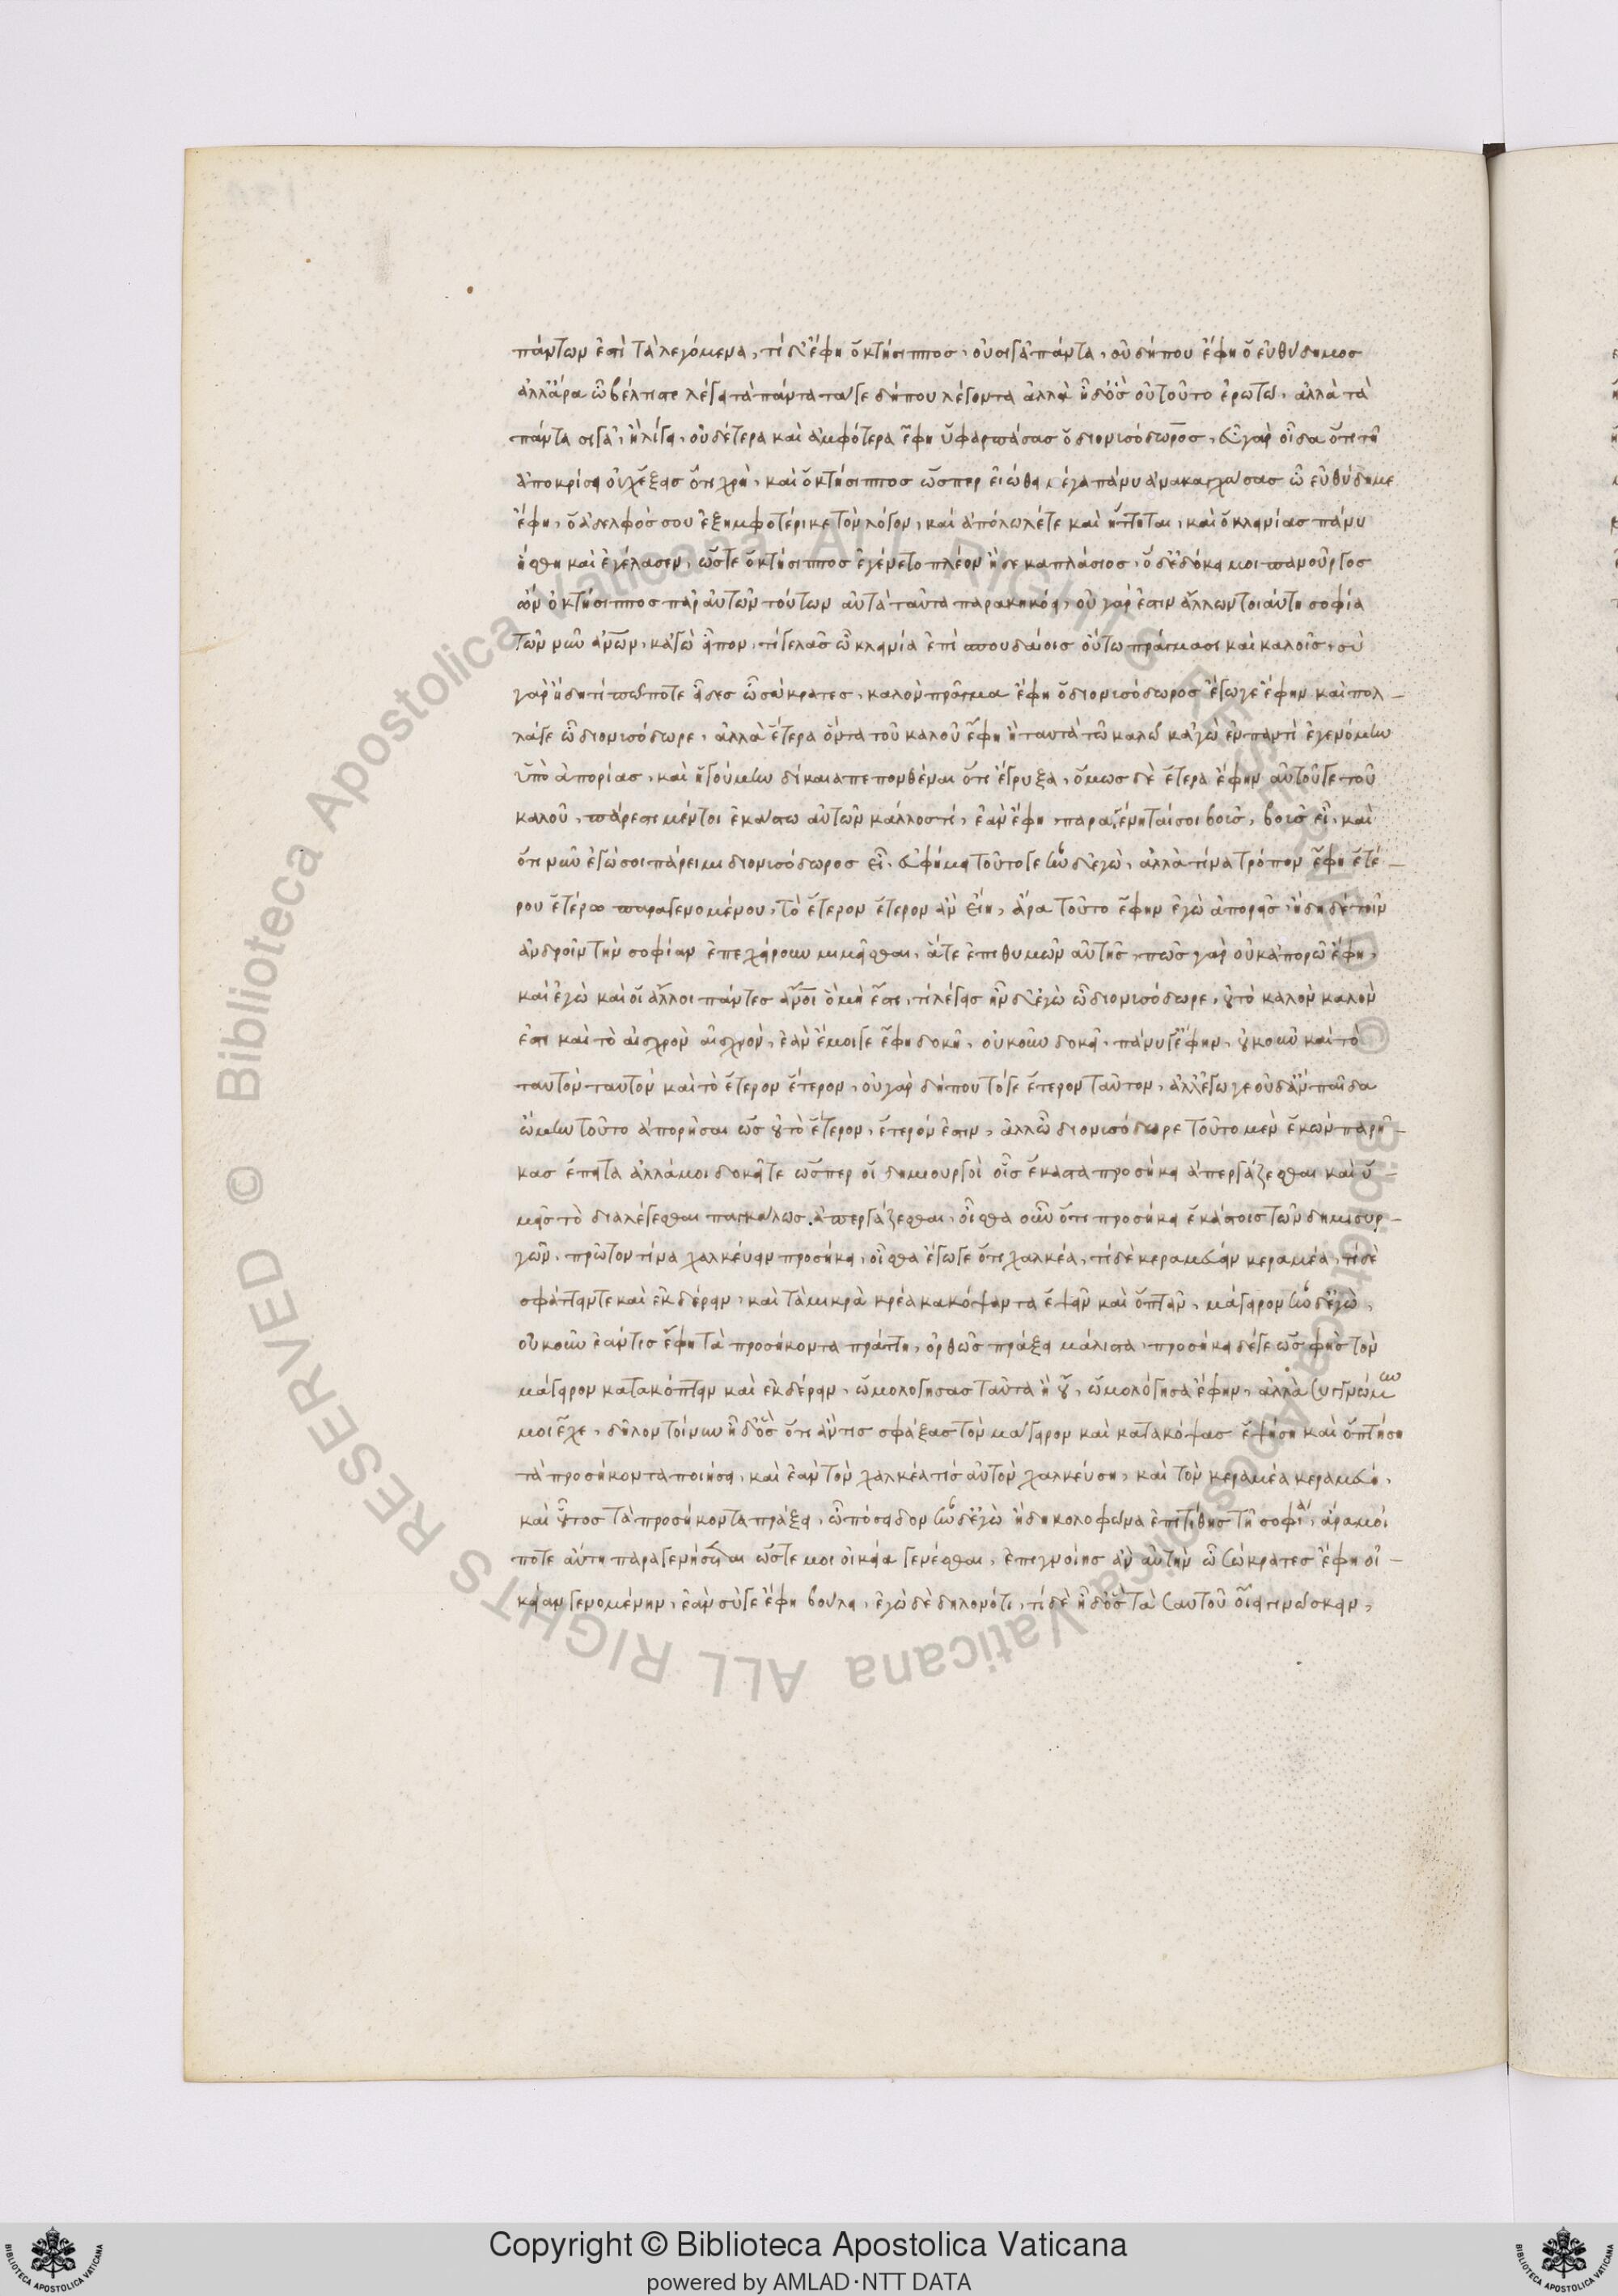 πάντων ἐστὶ τὰ λεγόμενα, τί δ' ἔφη ὁ κτήσιππος, οὐ σιγᾶ πάντα, οὐ δήπου ἔφη ὁ εὐθύδημος
ἀλλ' ἄρα ὦ βέλτιστε λέγει τὰ πάντα τά γε δήπου λέγοντα ἀλλὰ ἦ δ' ὃς οὐ τοῦτο ἐρωτῶ, ἀλλὰ τὰ
πάντα σιγᾶ, ἢ λέγει, οὐδέτερα καὶ ἀμφότερα ἔφη ὑφαρπάσας ὁ διονυσόδωρος, εὖ γὰρ οἶδα ὅτι τῆ
ἀποκρίσει οὐχ ἕξεις ὅτι χρῆ, καὶ ὁ κτήσιππος ὥσπερ εἰώθει μέγα πάνυ ἀνακαγχάσας ὦ εὐθύδημε
ἔφη, ὁ ἀδελφός σου ἐξημφοτέρικε τὸν λόγον, καὶ ἀπόλωλέ τε καὶ ἥττηται, καὶ ὁ κλεινίας πάνυ
ἥσθη καὶ ἐγέλασεν, ὥστε ὁ κτήσιππος ἐγένετο πλέον ἢ δεκαπλάσιος, ὁ δ' ἐδόκει μοι πανοῦργος
ὢν ὁ κτήσιππος παρ' αὐτῶν τούτων αὐτὰ ταῦτα παρακηκόει, οὐ γάρ ἐστιν ἄλλων τοιαύτη σοφία
τῶν νῦν ἀν̅ων, κἀγὼ εἶπον, τί γελᾶς ὦ κλεινία ἐπὶ σπουδαίοις οὕτω πράγμασι καὶ καλοῖς, σὺ
γὰρ ἤδη τί πώποτε εἶδες ὦ σώκρατες, καλὸν πρᾶγμα ἔφη ὁ διονυσόδωρος ἔγωγε ἔφην καὶ πολ-
λά γε ὦ διονυσόδωρε, ἆλλὰ ἕτερα ὄντα τοῦ καλοῦ ἔφη ἢ ταυτὰ τῶ καλῶ κἀγὼ ἐν παντὶ ἐγενόμην
ὑπὸ ἀπορίας, καὶ ἡγούμην δίκαια πεπονθέναι ὅτι ἔγρυξα, ὅμως δὲ ἕτερα ἔφην αὐτοῦ γε τοῦ
καλοῦ, πάρεστι μέντοι ἑκάστω αὐτῶν κάλλος τί, ἐὰν ἔφη παραγένηταί σοι βοῖς, βοῖς εἶ, καὶ
ὅτι νῦν ἐγώ σοι πάρειμι διονυσόδωρος εἶ, εὐφήμει τοῦτό γε ἦν δ' ἐγὼ, ἀλλὰ τίνα τρόπον ἔφη ἑτέ-
ρου ἑτέρω παραγενομένου, τὸ ἕτερον ἕτερον ἂν εἴη, ἆρα τοῦτο ἔφην ἐγὼ ἀπορεῖς, ἤδη δὲ τοῖν
ἀνδροῖν τὴν σοφίαν ἐπεχείρουν μιμεῖσθαι, ἅτε ἐπιθυμῶν αὐτῆς, πῶς γὰρ οὐκ ἀπορῶ ἔφη,
καὶ ἐγὼ καὶ οἱ ἄλλοι πάντες ἀν̅οι ὃ μὴ ἔστι, τί λέγεις ἦν δ' ἐγὼ ὦ διονυσόδωρε, οὐ τὸ καλὸν καλὸν
ἐστι καὶ τὸ αἰσχρὸν αἰσχρόν, ἐὰν ἔμοιγε ἔφη δοκῆ, οὐκοῦν δοκεῖ, πάνυ γε ἔφην, οὐκοῦν καὶ τὸ
ταυτὸν ταυτὸν καὶ τὸ ἕτερον ἕτερον, οὐ γὰρ δήπου τό γε ἕτερον ταὐτον, ἀλλ' ἔγωγε οὐδ' ἂν παῖδα
ᾤμην τοῦτο ἀπορῆσαι ὡς οὐ τὸ ἕτερον, ἕτερόν ἐστιν, ἀλλ' ὦ διονυσόδωρε τοῦτο μὲν ἑκὼν παρῆ-
κας ἔπειτα ἀλλά μοι δοκεῖτε ὥσπερ οἱ δημιουργοὶ οἷς ἕκαστα προσήκει ἀπεργάζεσθαι καὶ ὑ-
μεῖς τὸ διαλέγεσθαι παγκάλως ἀπεργάζεσθαι, οἶσθα οὖν ὅτι προσήκει ἑκάστοις τῶν δημιουρ-
γῶν, πρῶτον τίνα χαλκεύειν προσήκει, οἶσθα ἔγωγε ὅτι χαλκέα, τί δὲ κεραμεύειν κεραμέα, τί δὲ
σφάττειν τε καὶ ἐκδέρειν, καὶ τὰ μικρὰ κρέα κακόψαντα ἕψειν καὶ ὀπτᾶν, μάγειρον ἦν δ' ἐγὼ,
οὐκοῦν ἐάν τις ἔφη τὰ προσήκοντα πράττη, ὀρθῶς πράξει μάλιστα, προσήκει δέ γε ὡς φῂς τὸν
μάγειρον κατακόπτειν καὶ ἐκδέρειν, ὡμολόγησας ταῦτα ἢ οὔ, ὡμολόγησα ἔφην, ἀλλὰ συγγνώμην
μοι ἔχε, δῆλον τοίνυν ἦ δ' ὃς ὅτι ἄν τις σφάξας τὸν μάγειρον καὶ κατακόψας ἑψήση καὶ ὀπτήση
τὰ προσήκοντα ποιήσει, καὶ ἐὰν τὸν χαλκέα τίς αὐτὸν χαλκεύση, καὶ τὸν κεραμέα κεραμεύη,
καὶ οὗτος τὰ προσήκοντα πράξει, ὦ πόσειδον ἦν δ' ἐγὼ ἤδη κολοφῶνα ἐπιτίθης τῆ σοφία, ἆρα μοί
ποτε αὕτη παραγενήσεται ὥστε μοι οἰκεία γενέσθαι, ἐπιγνοίης ἂν αὐτὴν ὦ σώκρατες ἔφη οἰ-
κείαν γενομένην, ἐὰν σύ γε ἔφη βούλει, ἐγὼ δὲ δηλονότι, τί δὲ ἦ δ' ὃς τὰ σαυτοῦ οἴει γινώσκειν,
Copyright © Biblioteca Apostolica Vaticana
powered by AMLAD·NTT DATA